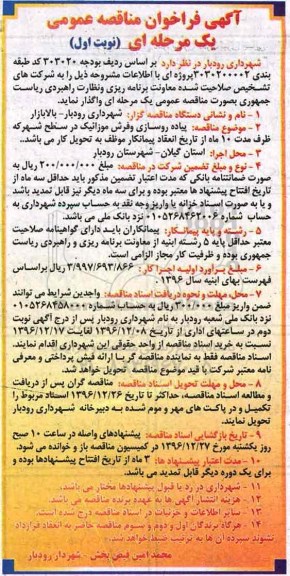 آگهی فراخوان مناقصه عمومی
یک مرحله ای (نوبت اول)
شهرداری رودبار در نظر دارد بر اساس ردیف بودجه ۳۰۳۰۲۰ کد طبقه
بندی ۳۰۳۰۲۰۰۰۰۲پروژه ای با اطلاعات مشروحه ذیل را به شرکت های
تشخیص صلاحیت شده معاونت برنامه ریزی ونظارت راهبردی ریاست
جمهوری بصورت مناقصه عمومی یک مرحله ای واگذار نماید.
۱- نام و نشانی دستگاه مناقصه گزار: شهرداری رودبار- بالابازار
۲- موضوع مناقصه: پیاده روسازی وفرش موزائیک در سطح شهرکه
ظرف مدت ۱۰ ماه از تاریخ انعقاد پیمانکار موظف به تحویل کار می باشد.
۳- محل اجرا: استان گیلان- شهرستان رودبار
۴- نوع و مبلغ تضمین شرکت در مناقصه: مبلغ ۲۰۰/۰۰۰/۰۰۰ ریال به
صورت ضمانتنامه بانکی که مدت اعتبار تضمین مذکور باید حداقل سه ماه از
تاریخ افتتاح پیشنهاد ها معتبر بوده و برای سه ماه دیگر نیز قابل تمدید باشد
و یا به صورت اسناد خزانه یا واریز وجه نقد به حساب سپرده شهرداری به
حساب شماره ۰۱۰۵۲۶۸۴۶۲۰۰۶ نزد بانک ملی می باشد.
۵- رشته و پایه پیمانکار: پیمانکاران باید دارای گواهینامه صلاحیت
معتبر حداقل پایه ۵ رشته ابنیه از معاونت برنامه ریزی و راهبردی ریاست
جمهوری بوده و ظرفیت کار مجاز الزامی است.
۶- مبلغ برآورد اولیه اجرا کار: ۳/۹۹۷/۶۹۳/۸۶۶ ریال براساس
فهرست بهای ابنیه سال ۱۳۹۶.
۷- محل مهلت و نحوه دریافت اسناد مناقصه: واجدین شرایط می توانند
ضمن واریز مبلغ ۳۰۰/۰۰۰ ریال به حساب شماره ۰۱۰۵۲۶۸۴۵۸۰۰۰
نزد بانک ملی شعبه رودبار به نام شهرداری رودبار پس از درج آگهی نوبت
دوم در ساعتهای اداری از تاریخ ۱۳۹۶/۱۲/۰۸ لغایت ۱۳۹۶/۱۲/۱۷
نسبت به خرید اسناد مناقصه از واحد حقوقی این شهرداری اقدام نمایند.
اسناد مناقصه فقط به نماینده مناقصه گر با ارائه فیش پرداختی و معرفی
نامه معتبر شرکت با قید موضوع مناقصه تحویل خواهد شد.
۸- محل و مهلت تحویل اسناد مناقصه: مناقصه گران پس از دریافت
و مطالعه اسناد مناقصه، حداکثر تا تاریخ ۱۳۹۶/۱۲/۲۶ اسناد مربوط را
تکمیل و در پاکت های مهر و موم شده به دبیرخانه شهرداری رودبار
تحویل نمایند.
۹- تاریخ بازگشایی اسناد مناقصه: پیشنهادهای واصله در ساعت ۱۰ صبح
روز یکشنبه مورخ ۱۳۹۶/۱۲/۲۷ در کمیسیون مناقصه باز و خوانده می شود.
۱۰- مدت اعتبار پیشنهاد ها: ۳ ماه از تاریخ افتتاح پیشنهادها بوده و
برای یک دوره دیگر قابل تمدید می باشد.
۱۱- شهرداری در رد یا قبول پیشنهادها مختار می باشد.
۱۲- هزینه انتشار آگهی ها به عهده برنده مناقصه می باشد.
۱۳- سایر اطلاعات و جزئیات در اسناد مناقصه درج شده است.
۱۴- هرگاه برندگان اول و دوم و سوم مناقصه حاضر به انعقاد قرارداد
نشوند سپرده آن ها به ترتیب ضبط خواهد شد.
محمد امین فیض بخش - شهردار رودبار